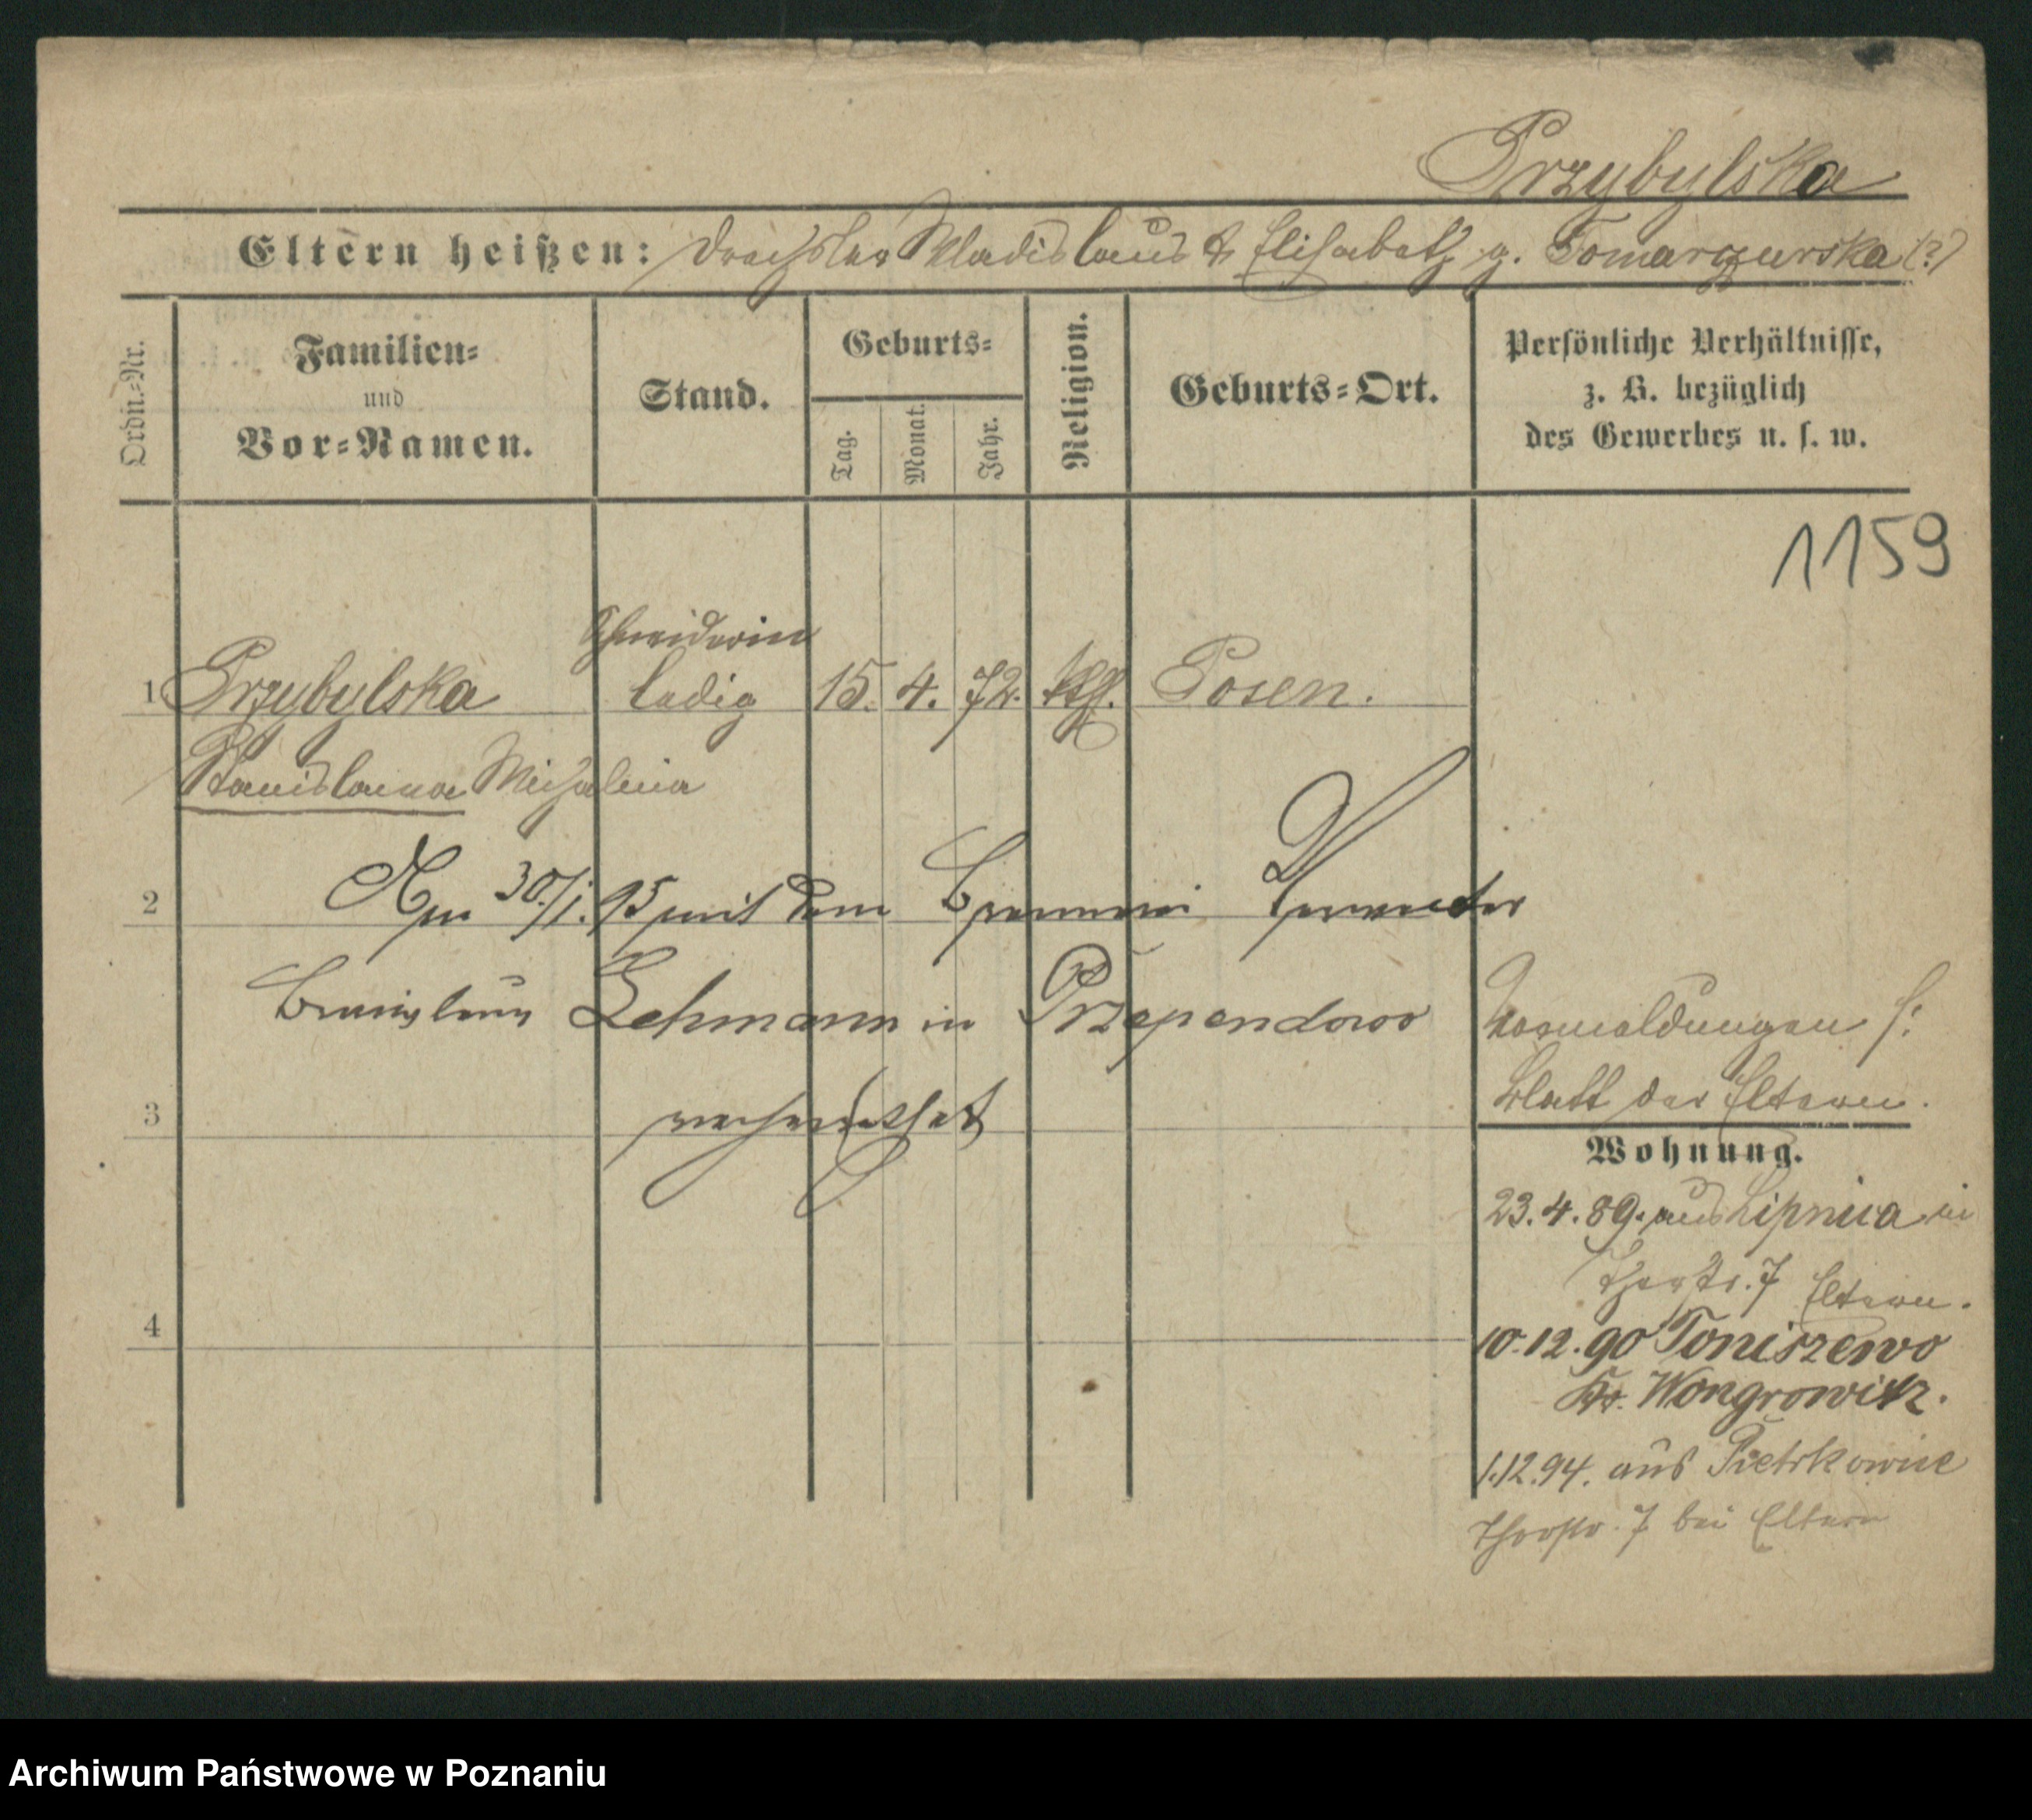 Przybylska
Eltern heißen: Drechsler Wladislaus & Elisabeth g. Tomarzewska (?)
Ordn.-Nr.
Familien-
und
Vor-Namen.
Stand.
Geburts-
Tag.
Monat.
Jahr.
Religion.
Geburts-Ort.
Persönliche Verhältnisse,
z. B. bezüglich
des Gewerbes u. s. w.
1159
Schneiderin
1 Przybylska ledig 15. 4. 72. kth. Posen.
Stanislawa Michalina
2 Am 30./1. 95 mit dem Brennerei Verwalter
Bronislaus Lehmann in Przependowo
3 verheirathet
Vormeldungen s:
Blatt der Eltern.
Wohnung.
23.4.89. aus Lipnica in
7 Eltern.
4
10.12.90 Toniszewo
Kr. Wongrowitz.
1.12.94. aus Pietrkowice
Thorstr. 7 bei Eltern
Archiwum Państwowe w Poznaniu